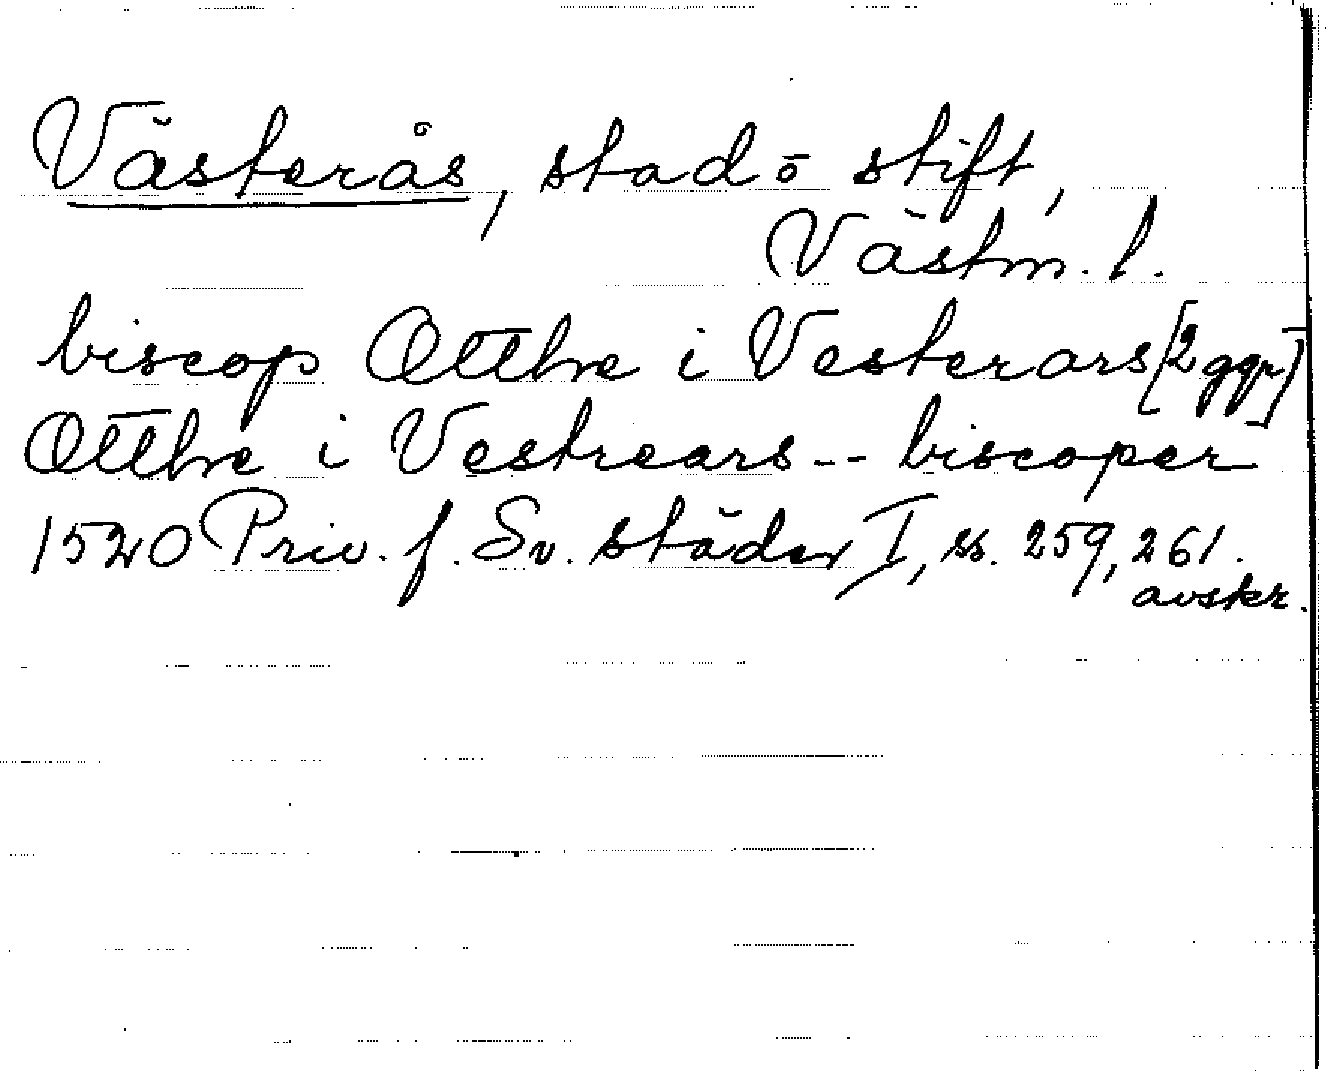 Västerås, stad o stift,
Västm. l.
biscop Otthe i Vesterars [2 ggr]
Otthe i Vestrears -- biscoper
1520 Priv. f. Sv. städer I, ss. 259, 261.
avskr.